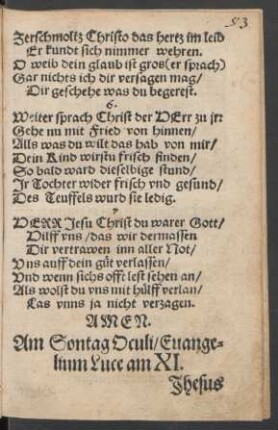 83
Zerschmoltz Christo das hertz im leib
Er kundt sich nimmer wehren.
O weib dein glaub ist gros(er sprach)
Gar nichts ich dir versagen mag/
Dir geschehe was du begerest.
6.
Weiter sprach Christ der HErr zu jr:
Gehe nu mit Fried von hinnen/
Alls was du wilt das hab von mir/
Dein Kind wirstu frisch finden/
So bald ward dieselbige stund/
Jr Tochter wider frisch vnd gesund/
Des Teuffels wurd sie ledig.
7
HERR Jesu Christ du warer Gott/
Hilff vns/das wir dermassen
Dir vertrawen inn aller Not/
Vns auff dein güt verlassen/
Vnd wenn sichs offt lest sehen an/
Als wolst du vns mit hülff verlan/
Las vnns ja nicht verzagen.
AMEN.
Am Sontag Oculi/Euange-
lium Luce am XI.
Jhesus